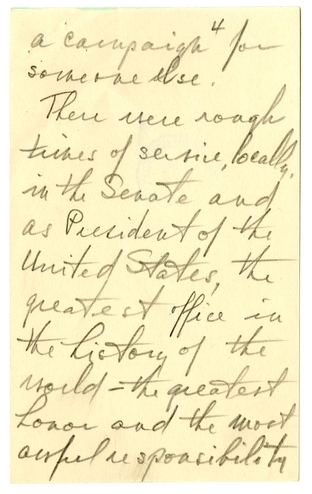 4
a campaign for
someone else.
There were rough
times of service, locally,
in the Senate and
as President of the
United States, the
greatest office in
the history of the
world - the greatest
honor and the most
awful responsibility